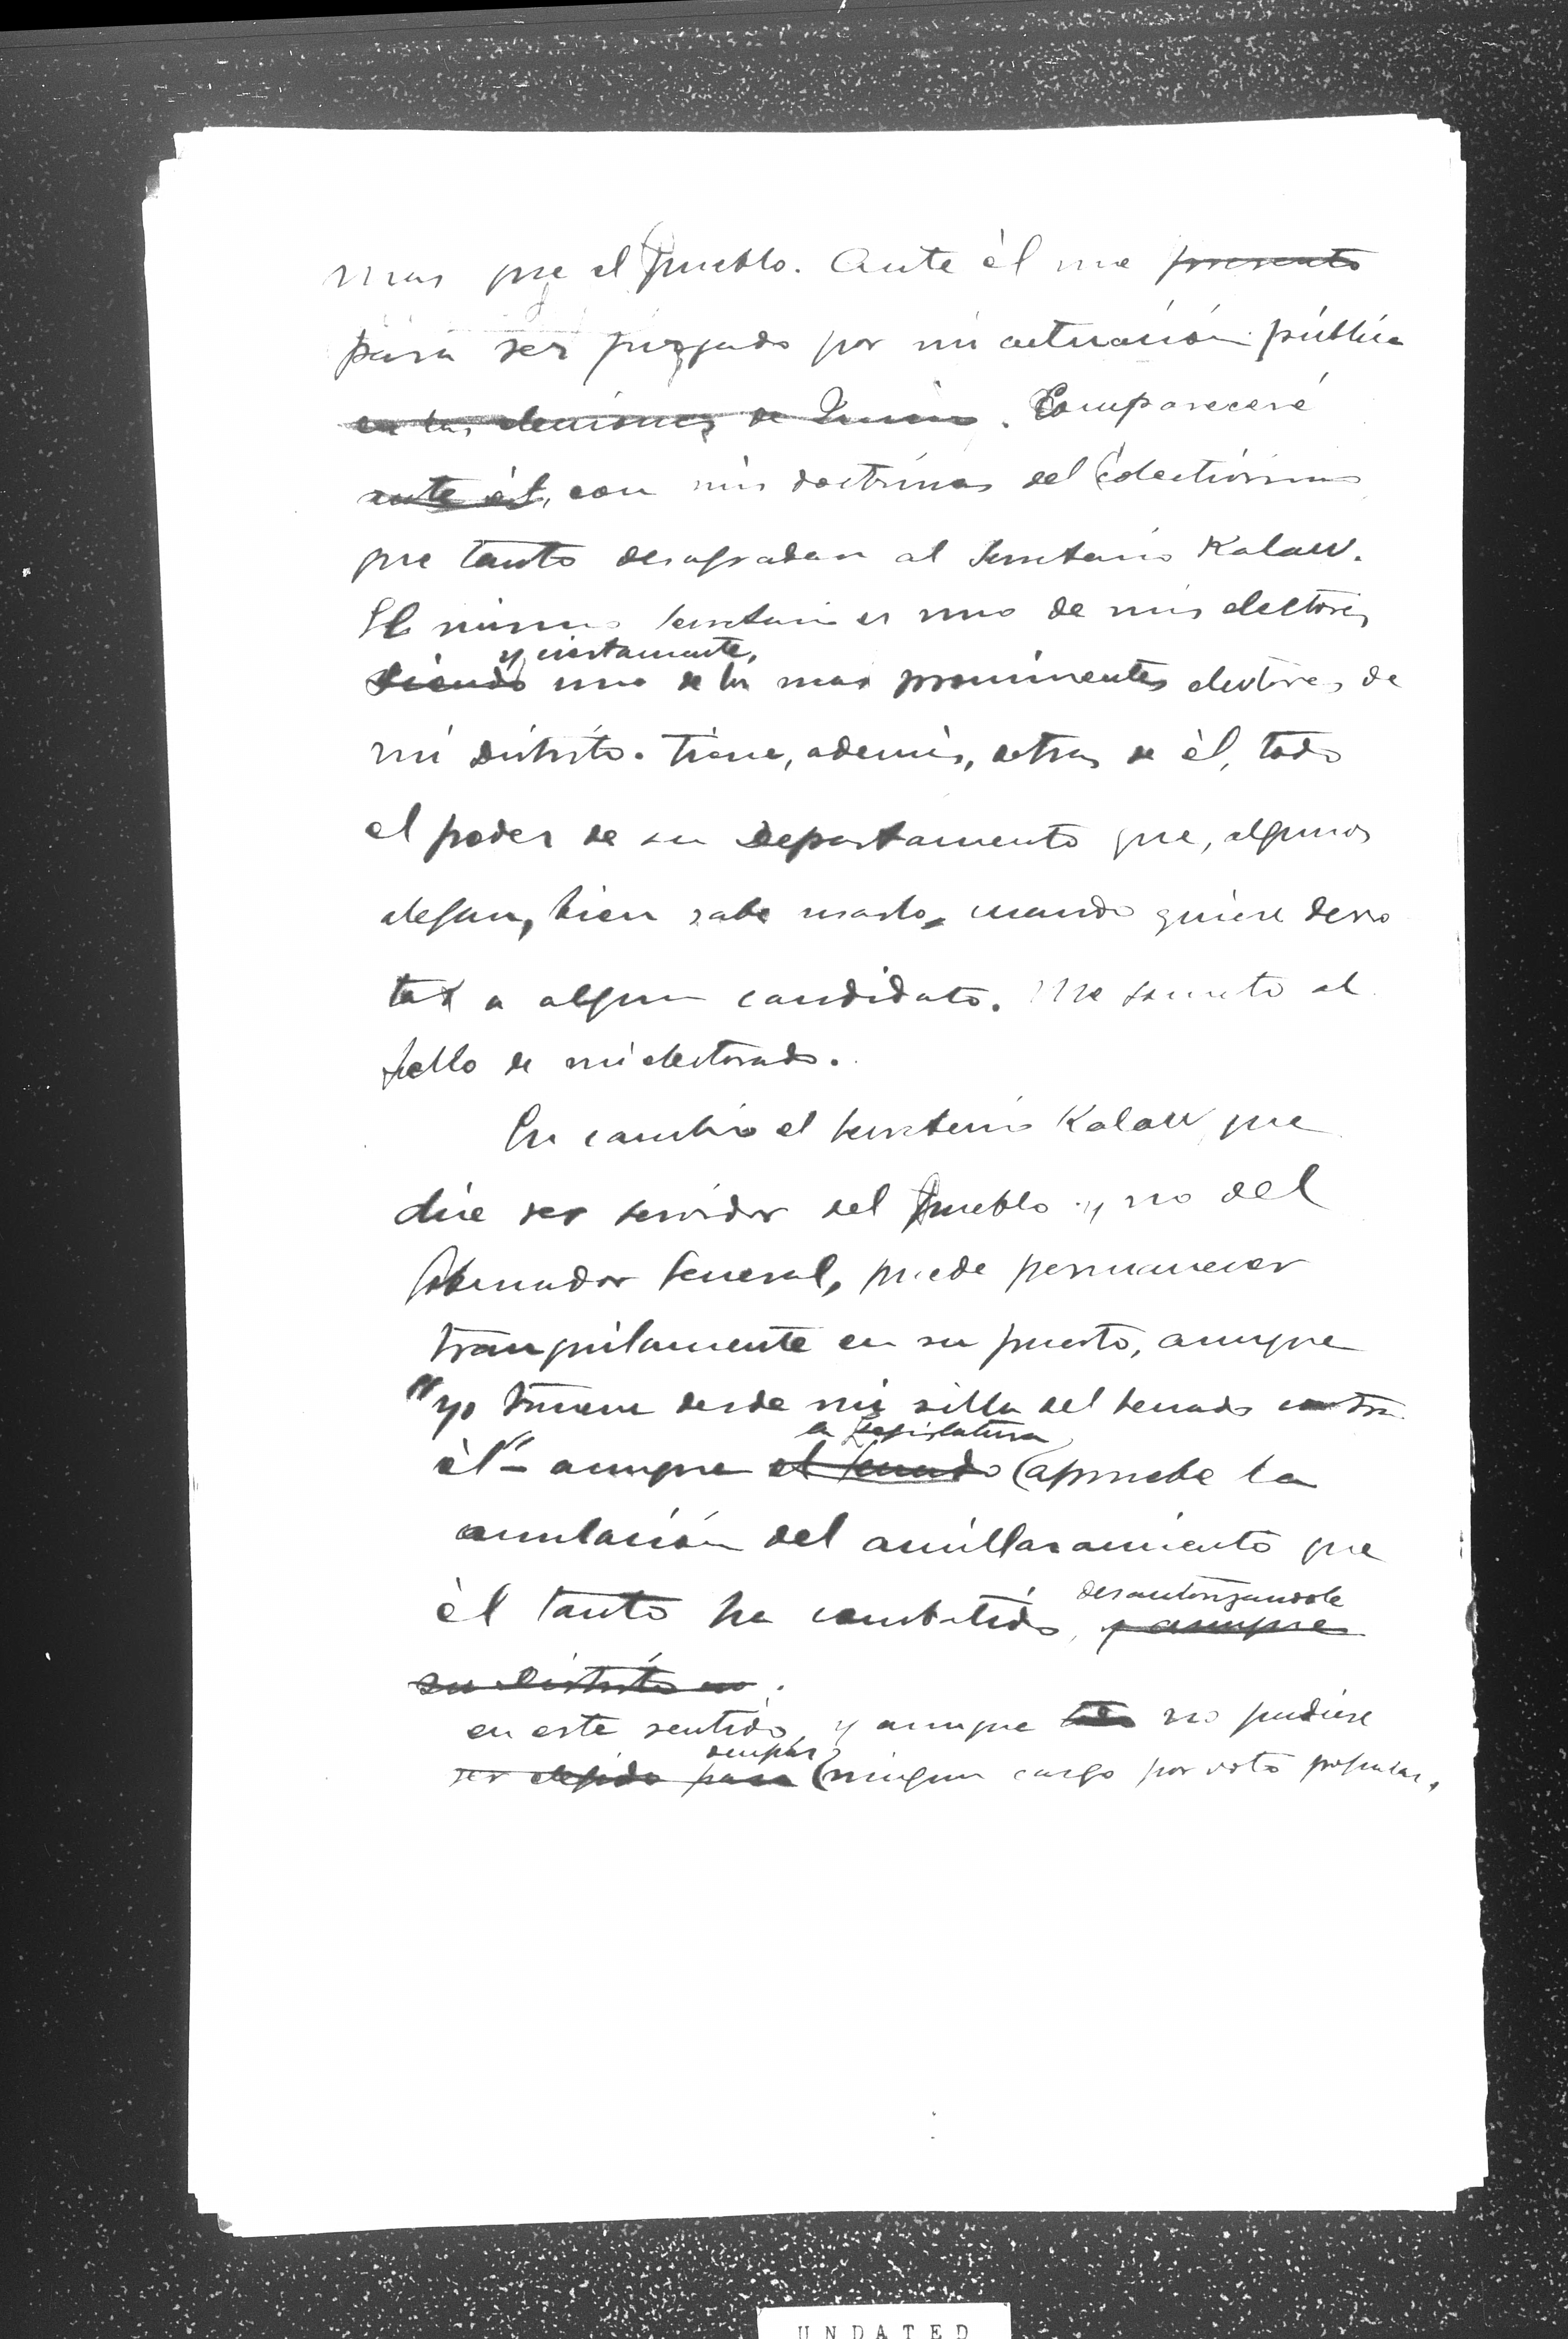 mas que el pueblo. Ante èl me presento
para ser juzgado por mi actuación pública
en las elecciones de Junio. Compareceré
ante él, con mis doctrinas del colectivismo
que tanto desagradan al Secretario Kalaw.
El mismo Secretario es uno de mis electores
y ciertamente,
siendo uno de los mas prominentes electores de
mi distrito. Tiene, además, detras de èl, todo
el poder de su Departamento que, algunos
alegan, bien sabe usarlo, cuando quiere derro
tar a algun candidato. Me someto al
fallo de mi electorado.
En cambio el Secretario Kalaw, que
dice ser servidor del Pueblo y no del
Gobernador General, puede permanecer
tranquilamente en su puesto, aunque
"yo truene desde mi silla del Senado contra
la Legislatura
èl" - aunque el Senado apruebe la
anulación del amillaramiento que
èl tanto ha combatido, desautorizandole
y aunque
su distrito no.
en este sentido, y aunque no pudiese
ocupar
ser elegido para ningun cargo por voto popular,
UNDATED